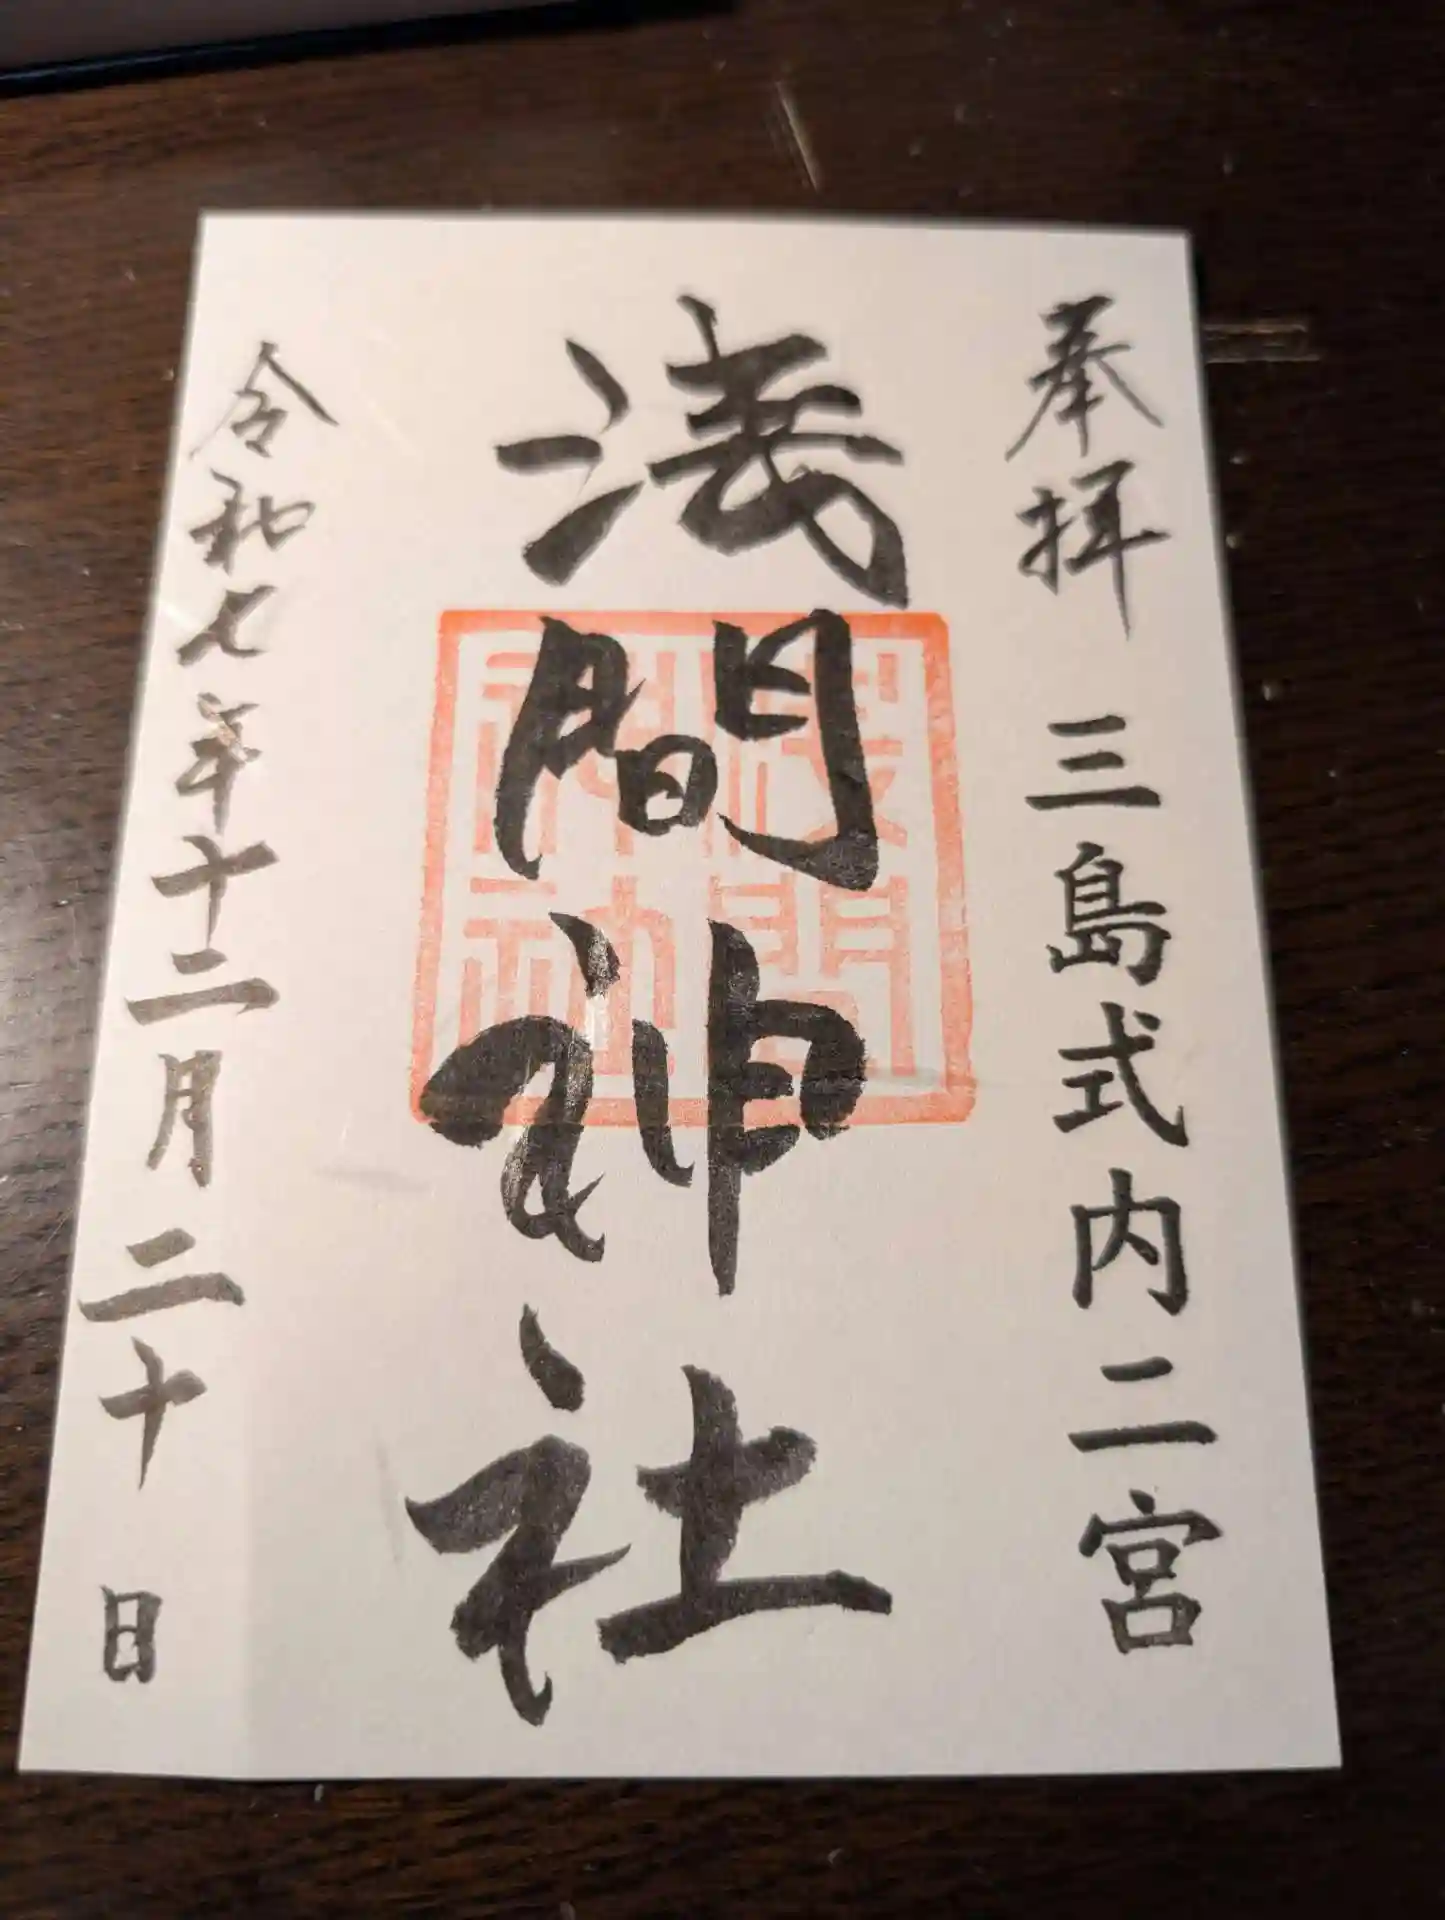 奉拝 三島式内二宮
浅間神社
浅間神社
令和七年十二月二十日